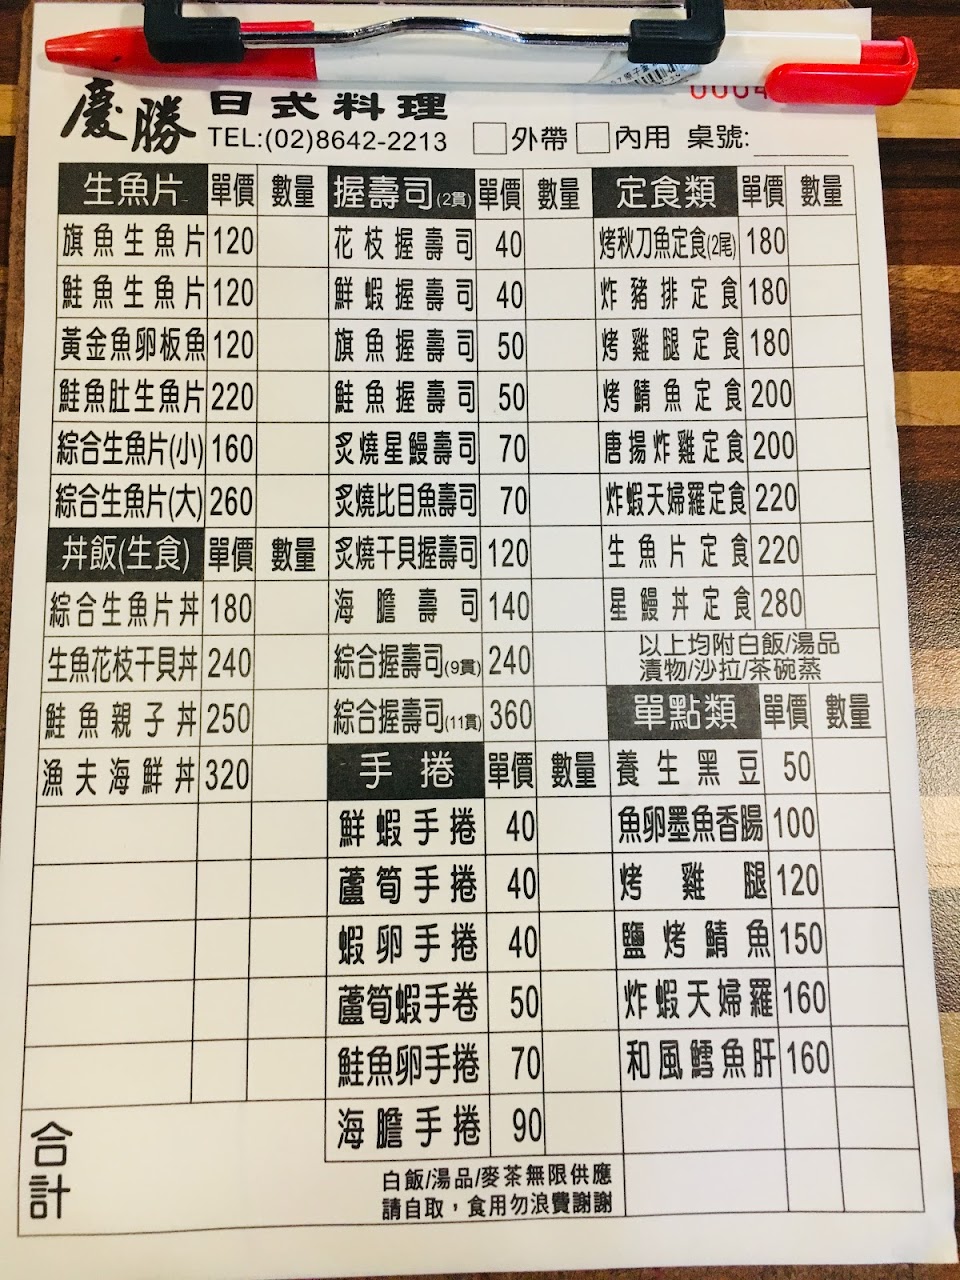 0004
慶勝 日式料理
TEL:(02)8642-2213 □外帶 □內用 桌號:
生魚片 單價 數量
旗魚生魚片 120
鮭魚生魚片 120
黃金魚卵板魚 120
鮭魚肚生魚片 220
綜合生魚片(小) 160
綜合生魚片(大) 260
丼飯(生食) 單價 數量
綜合生魚片丼 180
生魚花枝干貝丼 240
鮭魚親子丼 250
漁夫海鮮丼 320
合計
握壽司(2貫) 單價 數量
花枝握壽司 40
鮮蝦握壽司 40
旗魚握壽司 50
鮭魚握壽司 50
炙燒星鰻壽司 70
炙燒比目魚壽司 70
炙燒干貝握壽司 120
海膽壽司 140
綜合握壽司(9貫) 240
綜合握壽司(11貫) 360
手捲 單價 數量
鮮蝦手捲 40
蘆筍手捲 40
蝦卵手捲 40
蘆筍蝦手卷 50
鮭魚卵手捲 70
海膽手捲 90
白飯/湯品/麥茶無限供應
請自取，食用勿浪費謝謝
定食類 單價 數量
烤秋刀魚定食(2尾) 180
炸豬排定食 180
烤雞腿定食 180
烤鯖魚定食 200
唐揚炸雞定食 200
炸蝦天婦羅定食 220
生魚片定食 220
星鰻丼定食 280
以上均附白飯/湯品
漬物/沙拉/茶碗蒸
單點類 單價 數量
養生黑豆 50
魚卵墨魚香腸 100
烤雞腿 120
鹽烤鯖魚 150
炸蝦天婦羅 160
和風鱈魚肝 160